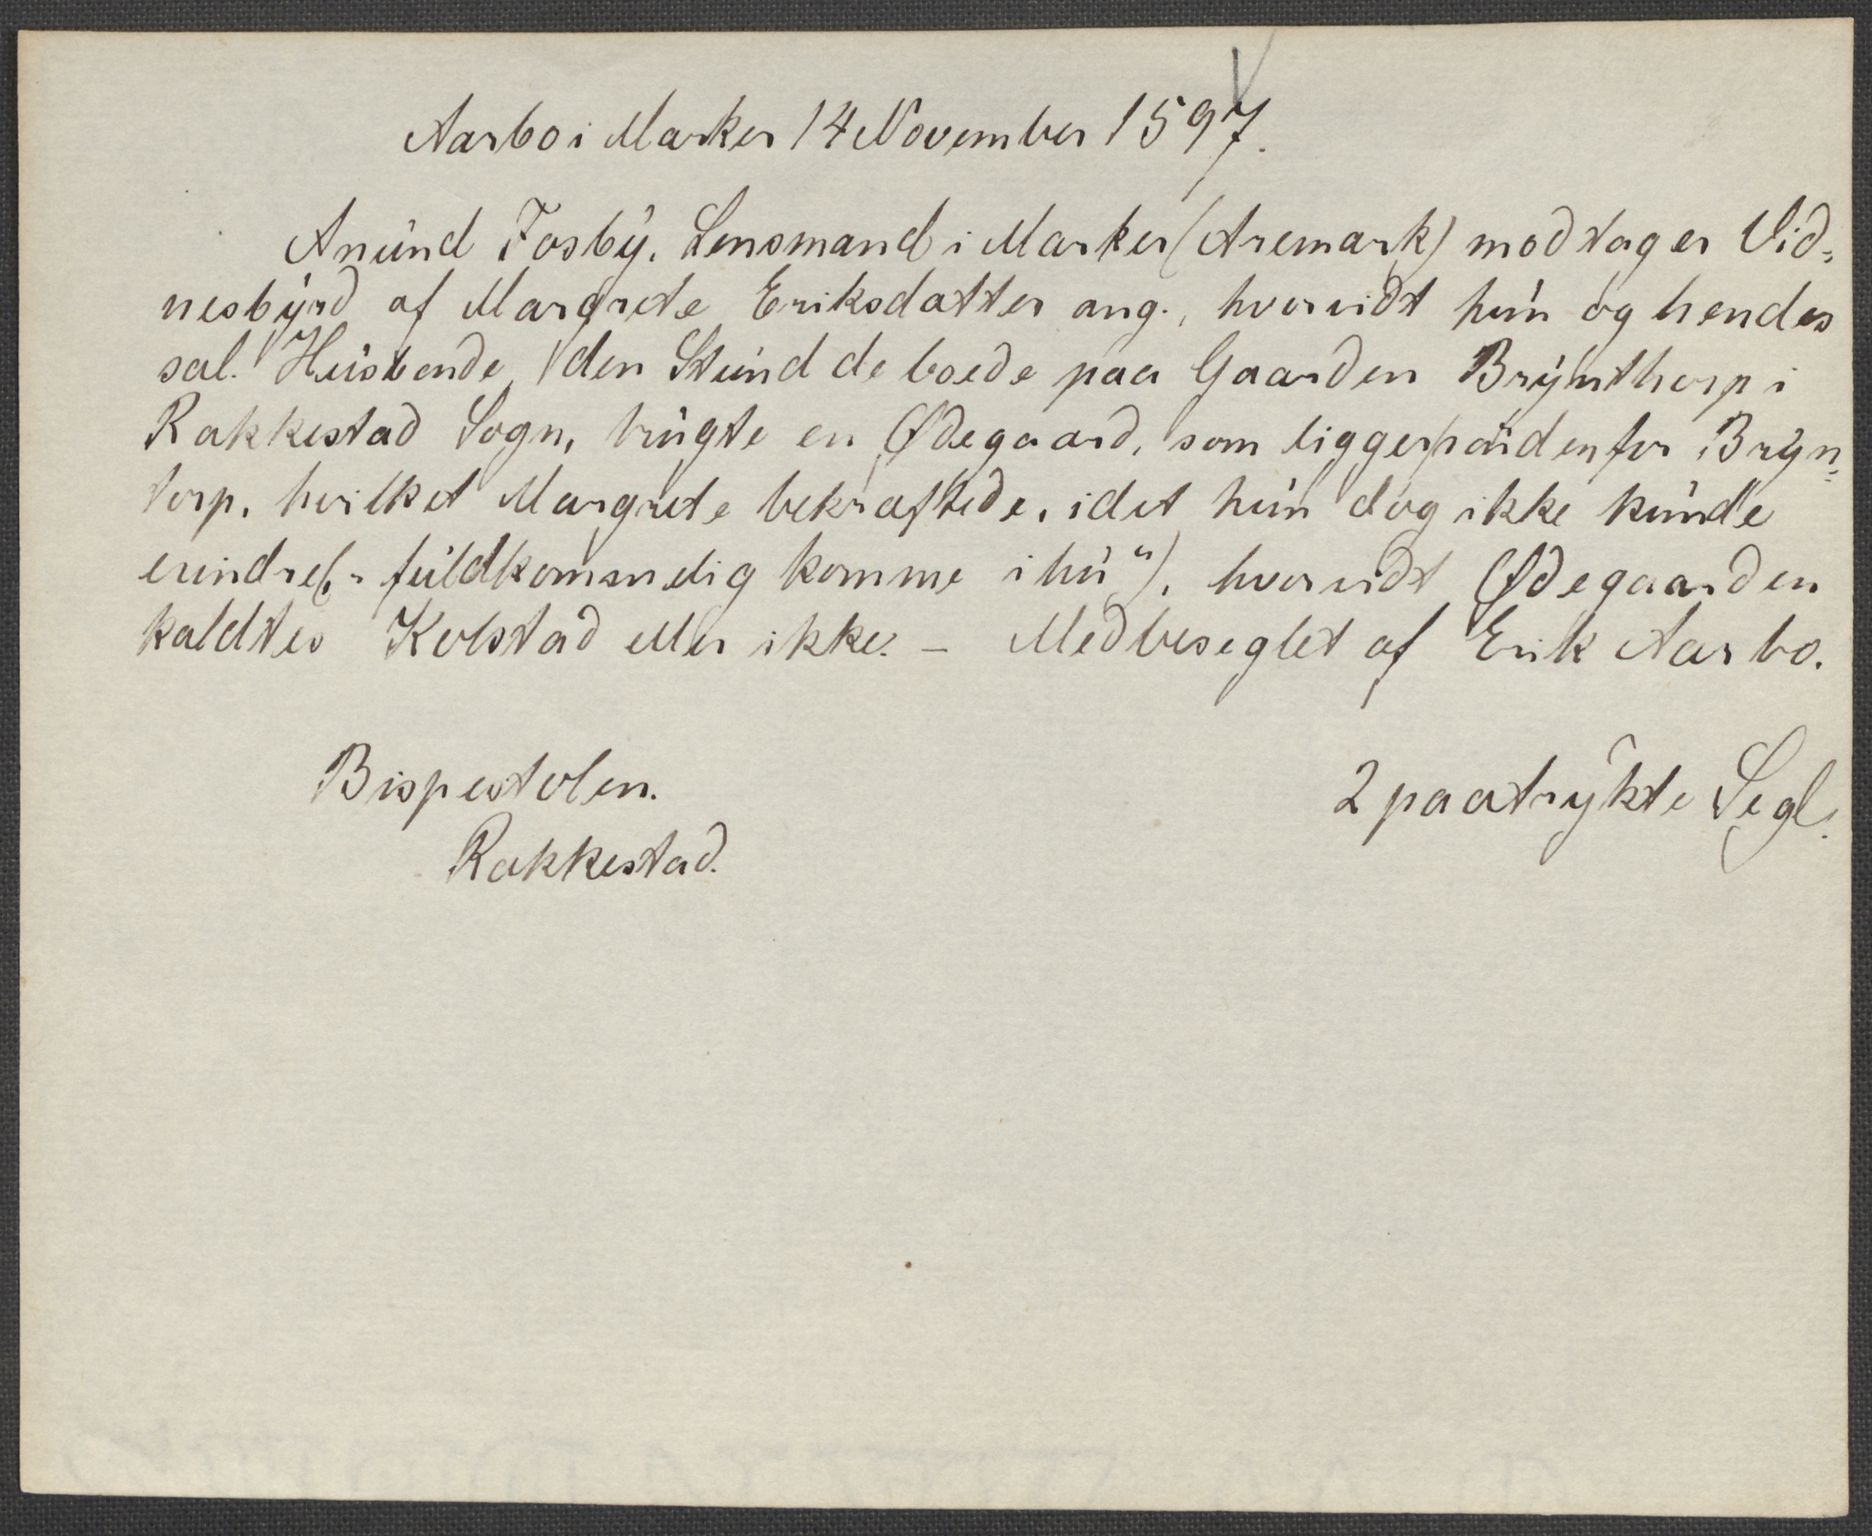 Aarbo i Marker 14 November 1597.
Anund Fosby, Lensmand i Marker (Aremark) modtager Vid-
nesbyrd af Margrete Eriksdatter ang., hvorvidt hun og hendes
sal. Husbonde, den Stund de boede paa Gaarden Brynthorp i
Rakkestad Sogn, brugte en Ødegaard, som ligger norden for Bryn-
torp, hvilket Margrete bekræftede, idet hun dog ikke kunde
erindre („fuldkommelig komme ihu“), hvorvidt Ødegaarden
kaldtes Kolstad eller ikke. – Medbeseglet af Erik Aarbo.
Bispestolen.
2 paatrykte Segl.
Rakkestad.